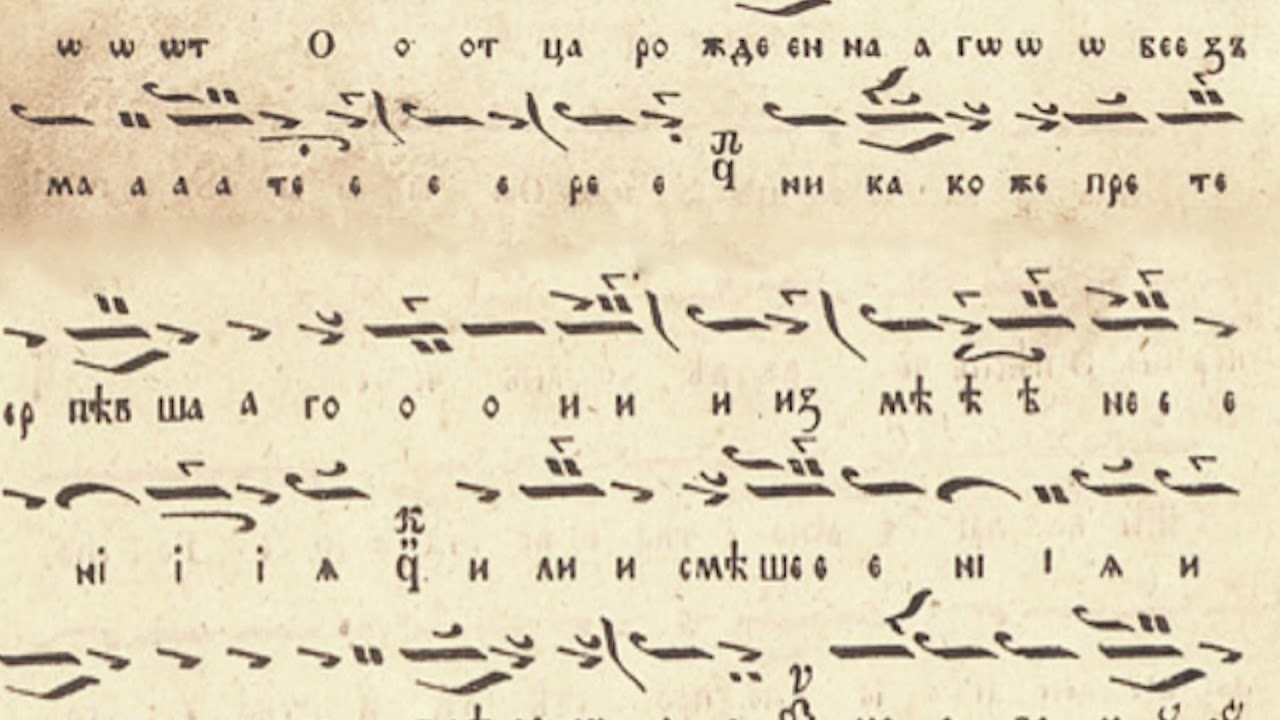 ѡ ѡ ѡт О о от ца ро жде ен на а гѡ ѡ ѡ бее зъ
ма а а а те е е е ре е п ч ни ка ко же пре те
ер пѣв ша а го о о и и и из мѣ ѣ ѣ не е е
ні і і ѧ к ч и ли и смѣ ше е е ні і ѧ и